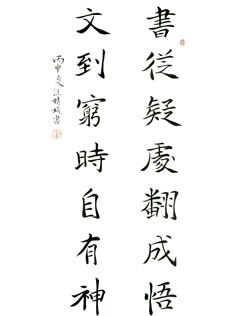 書從疑處翻成悟
文到窮時自有神
丙申